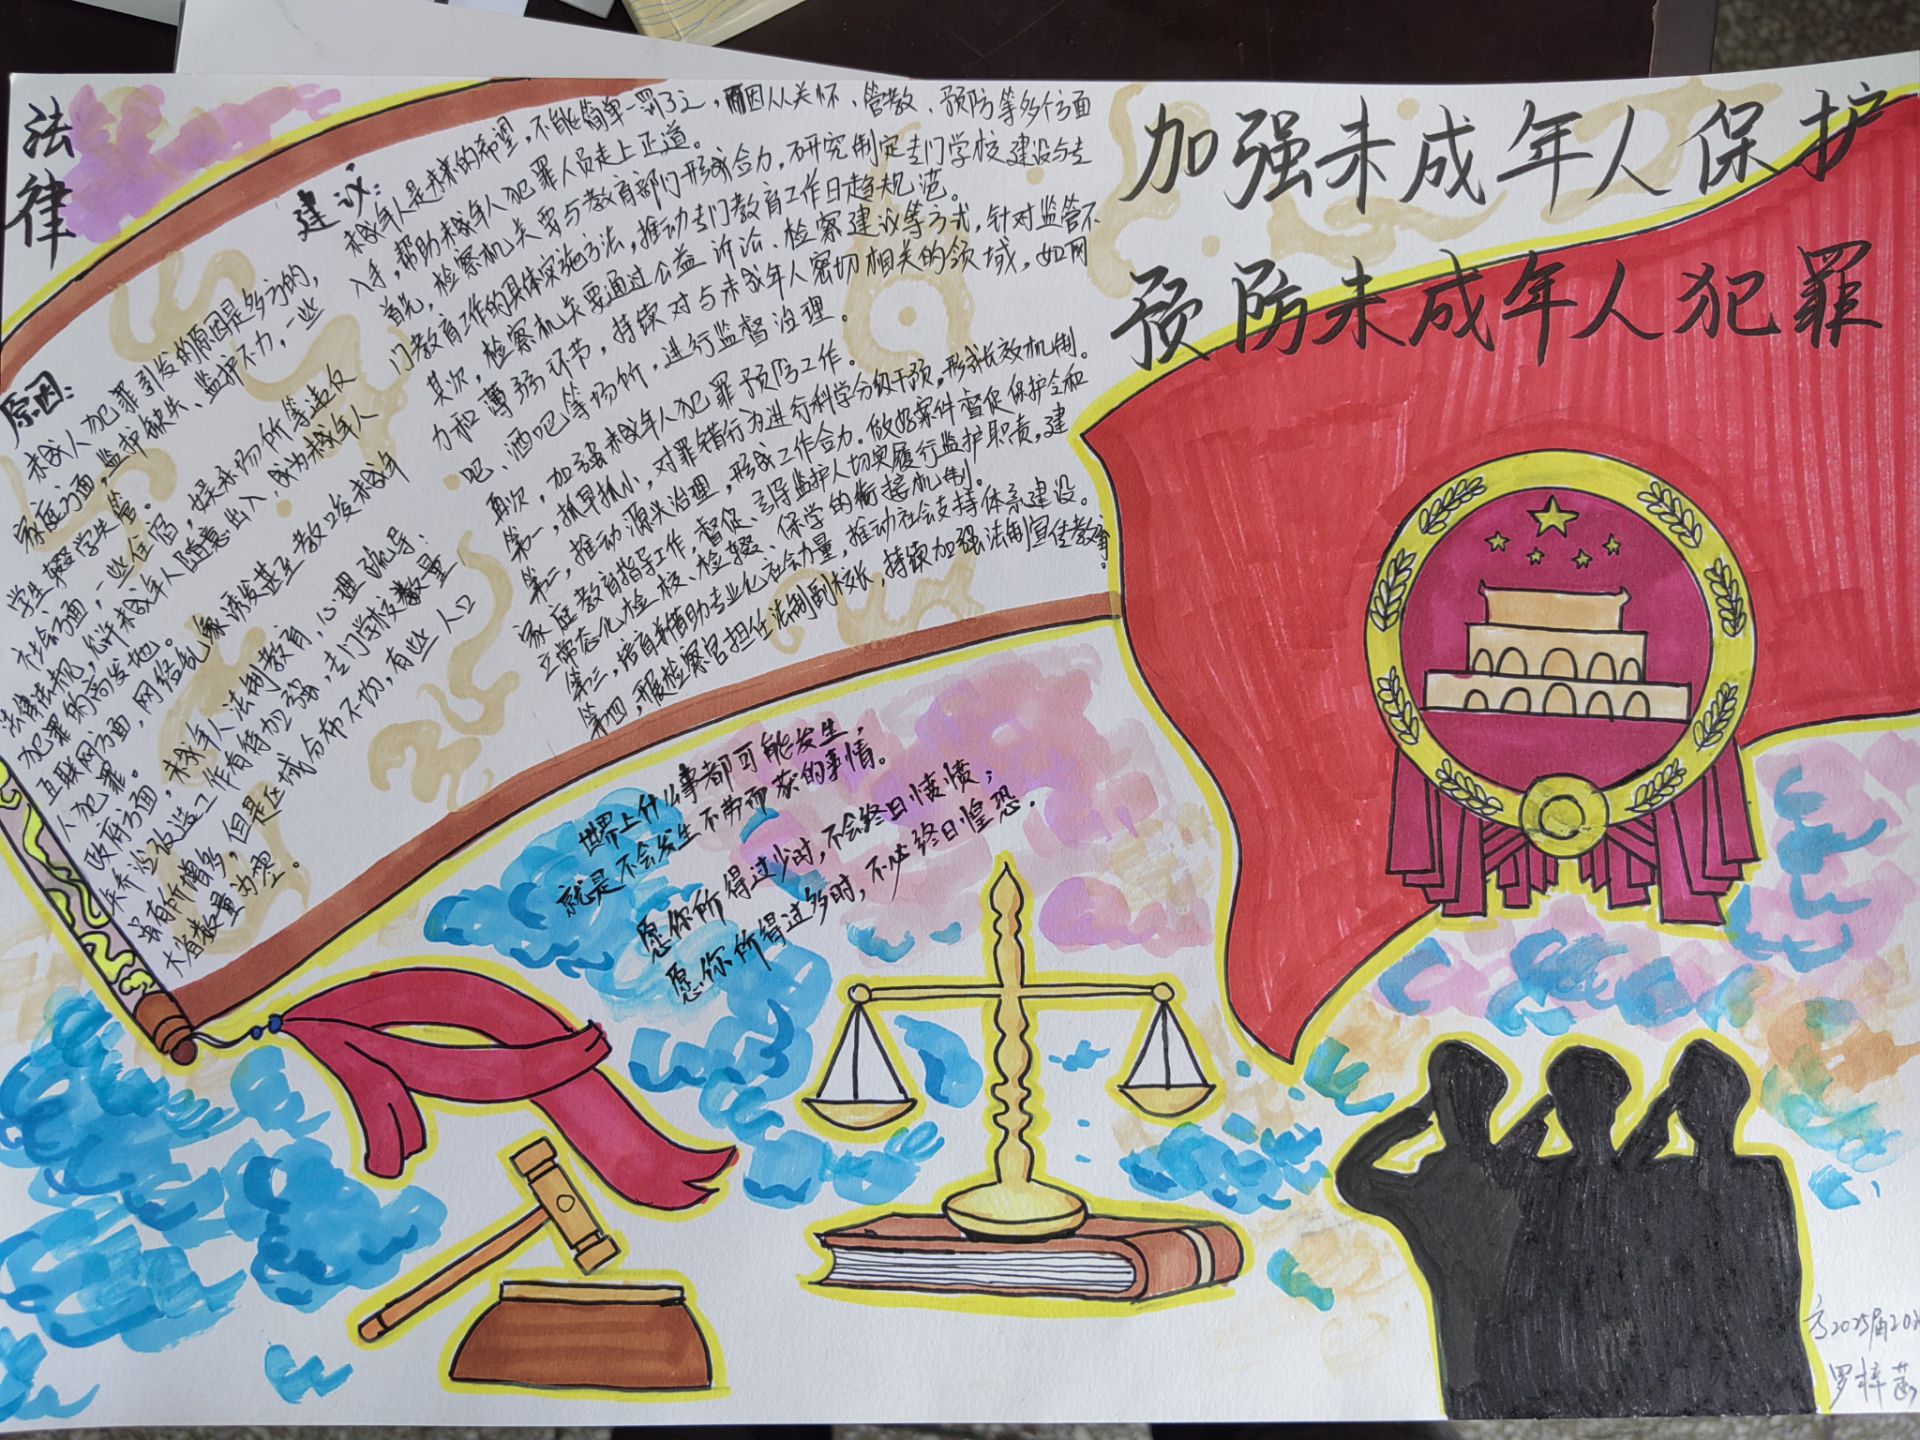 加强未成年人保护
预防未成年人犯罪
法律
原因:
未成人犯罪引发的原因是多方的,
家庭方面,监护缺失、监护不力,一些
学生辍学失管。
社会方面,一些住宿,娱乐场所等违反
法律法规,允许未成年人随意出入,成为未成年人
犯罪的高发地。
互联网方面,网络乱象诱发甚至教唆未成年
人犯罪。
政府方面,未成年人法制教育,心理疏导,
改造工作有待加强,专门学校数量,
虽有所增多,但是区域分布不均,有些人口
大省数量为零。
建议:
未成年人是未来的希望,不能简单一罚了之,而因从关怀、管教、预防等多个方面
入手,帮助未成年人犯罪人员走上正道。
首先,检察机关要与教育部门形成合力,研究制定专门学校建设与专
门教育工作的具体实施方法,推动专门教育工作日趋规范。
其次,检察机关要通过公益诉讼、检察建议等方式,针对监管不
力和薄弱环节,持续对与未成年人密切相关的领域,如网
吧、酒吧等场所,进行监督治理。
再次,加强未成年人犯罪预防工作。
第一,抓早抓小,对罪错行为进行科学分级干预,形成长效机制。
第二,推动源头治理,形成工作合力。做好案件督促保护令和
家庭教育指导工作,督促、引导监护人切实履行监护职责,建
立常态化检校、检辍、保学的衔接机制。
第三,培育并借助专业化社会力量,推动社会支持体系建设。
第四,开展检察官担任法制副校长,持续加强法制宣传教育。
世界上什么事都可能发生,
就是不会发生不劳而获的事情。
愿你所得过少时,不会终日愤愤;
愿你所得过多时,不必终日惶恐.
高2025届
罗梓菡